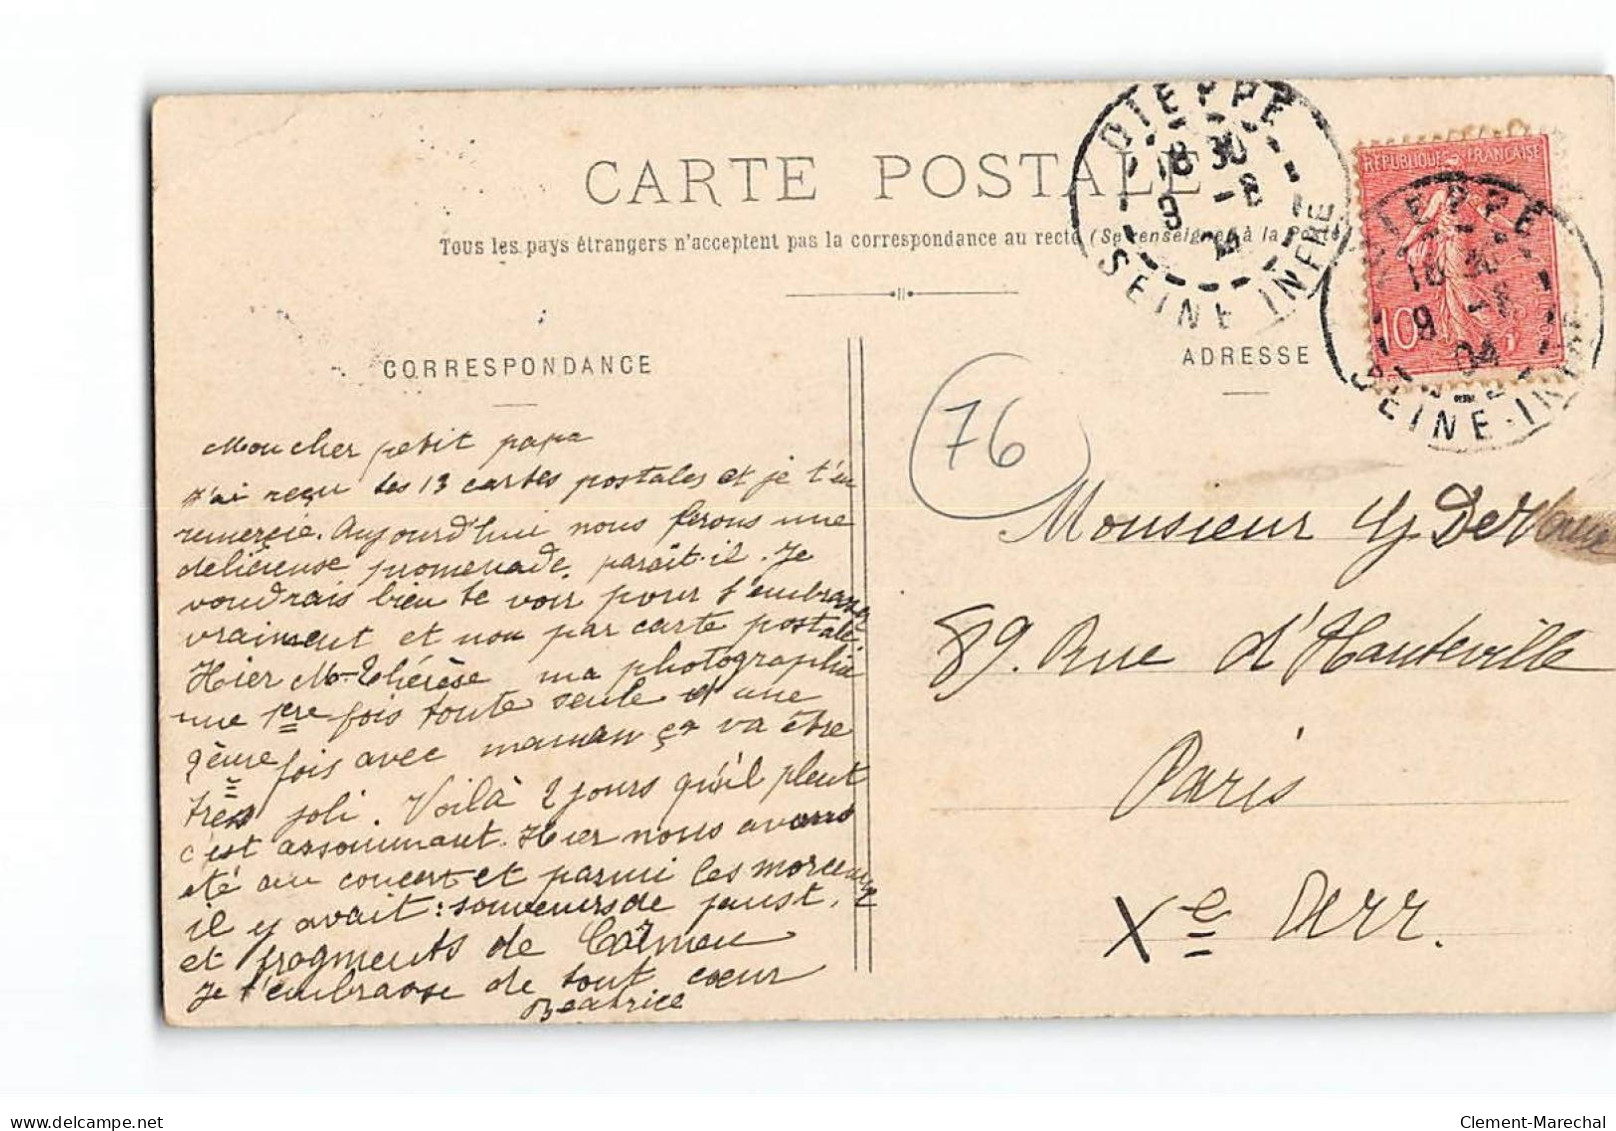 CARTE POSTALE
Tous les pays étrangers n'acceptent pas la correspondance au recto (Se renseigner à la Poste)
DIEPPE
18 30
9 -8
SEINE INFRE
REPUBLIQUE FRANÇAISE
10
DIEPPE
18 30
9 -8
04
SEINE-INFRE
CORRESPONDANCE
ADRESSE
76
Mon cher petit papa
J'ai reçu tes 13 cartes postales et je t'en
remercie. Aujourd'hui nous ferons une
délicieuse promenade, paraît-il. Je
voudrais bien te voir pour t'embrasser
vraiment et non par carte postale.
Hier M-Thérèse ma photographiée
une 1ère fois toute seule et une
2ème fois avec maman ça va être
très joli. Voilà 2 jours qu'il pleut
c'est assommant. Hier nous avons
été au concert et parmi les morceaux
il y avait : souvenirs de faust,
et fragments de Carmen
Je t'embrasse de tout cœur
Beatrice
Monsieur
89. Rue d'Hauteville
Paris
Xe Arr.
Clement-Marechal